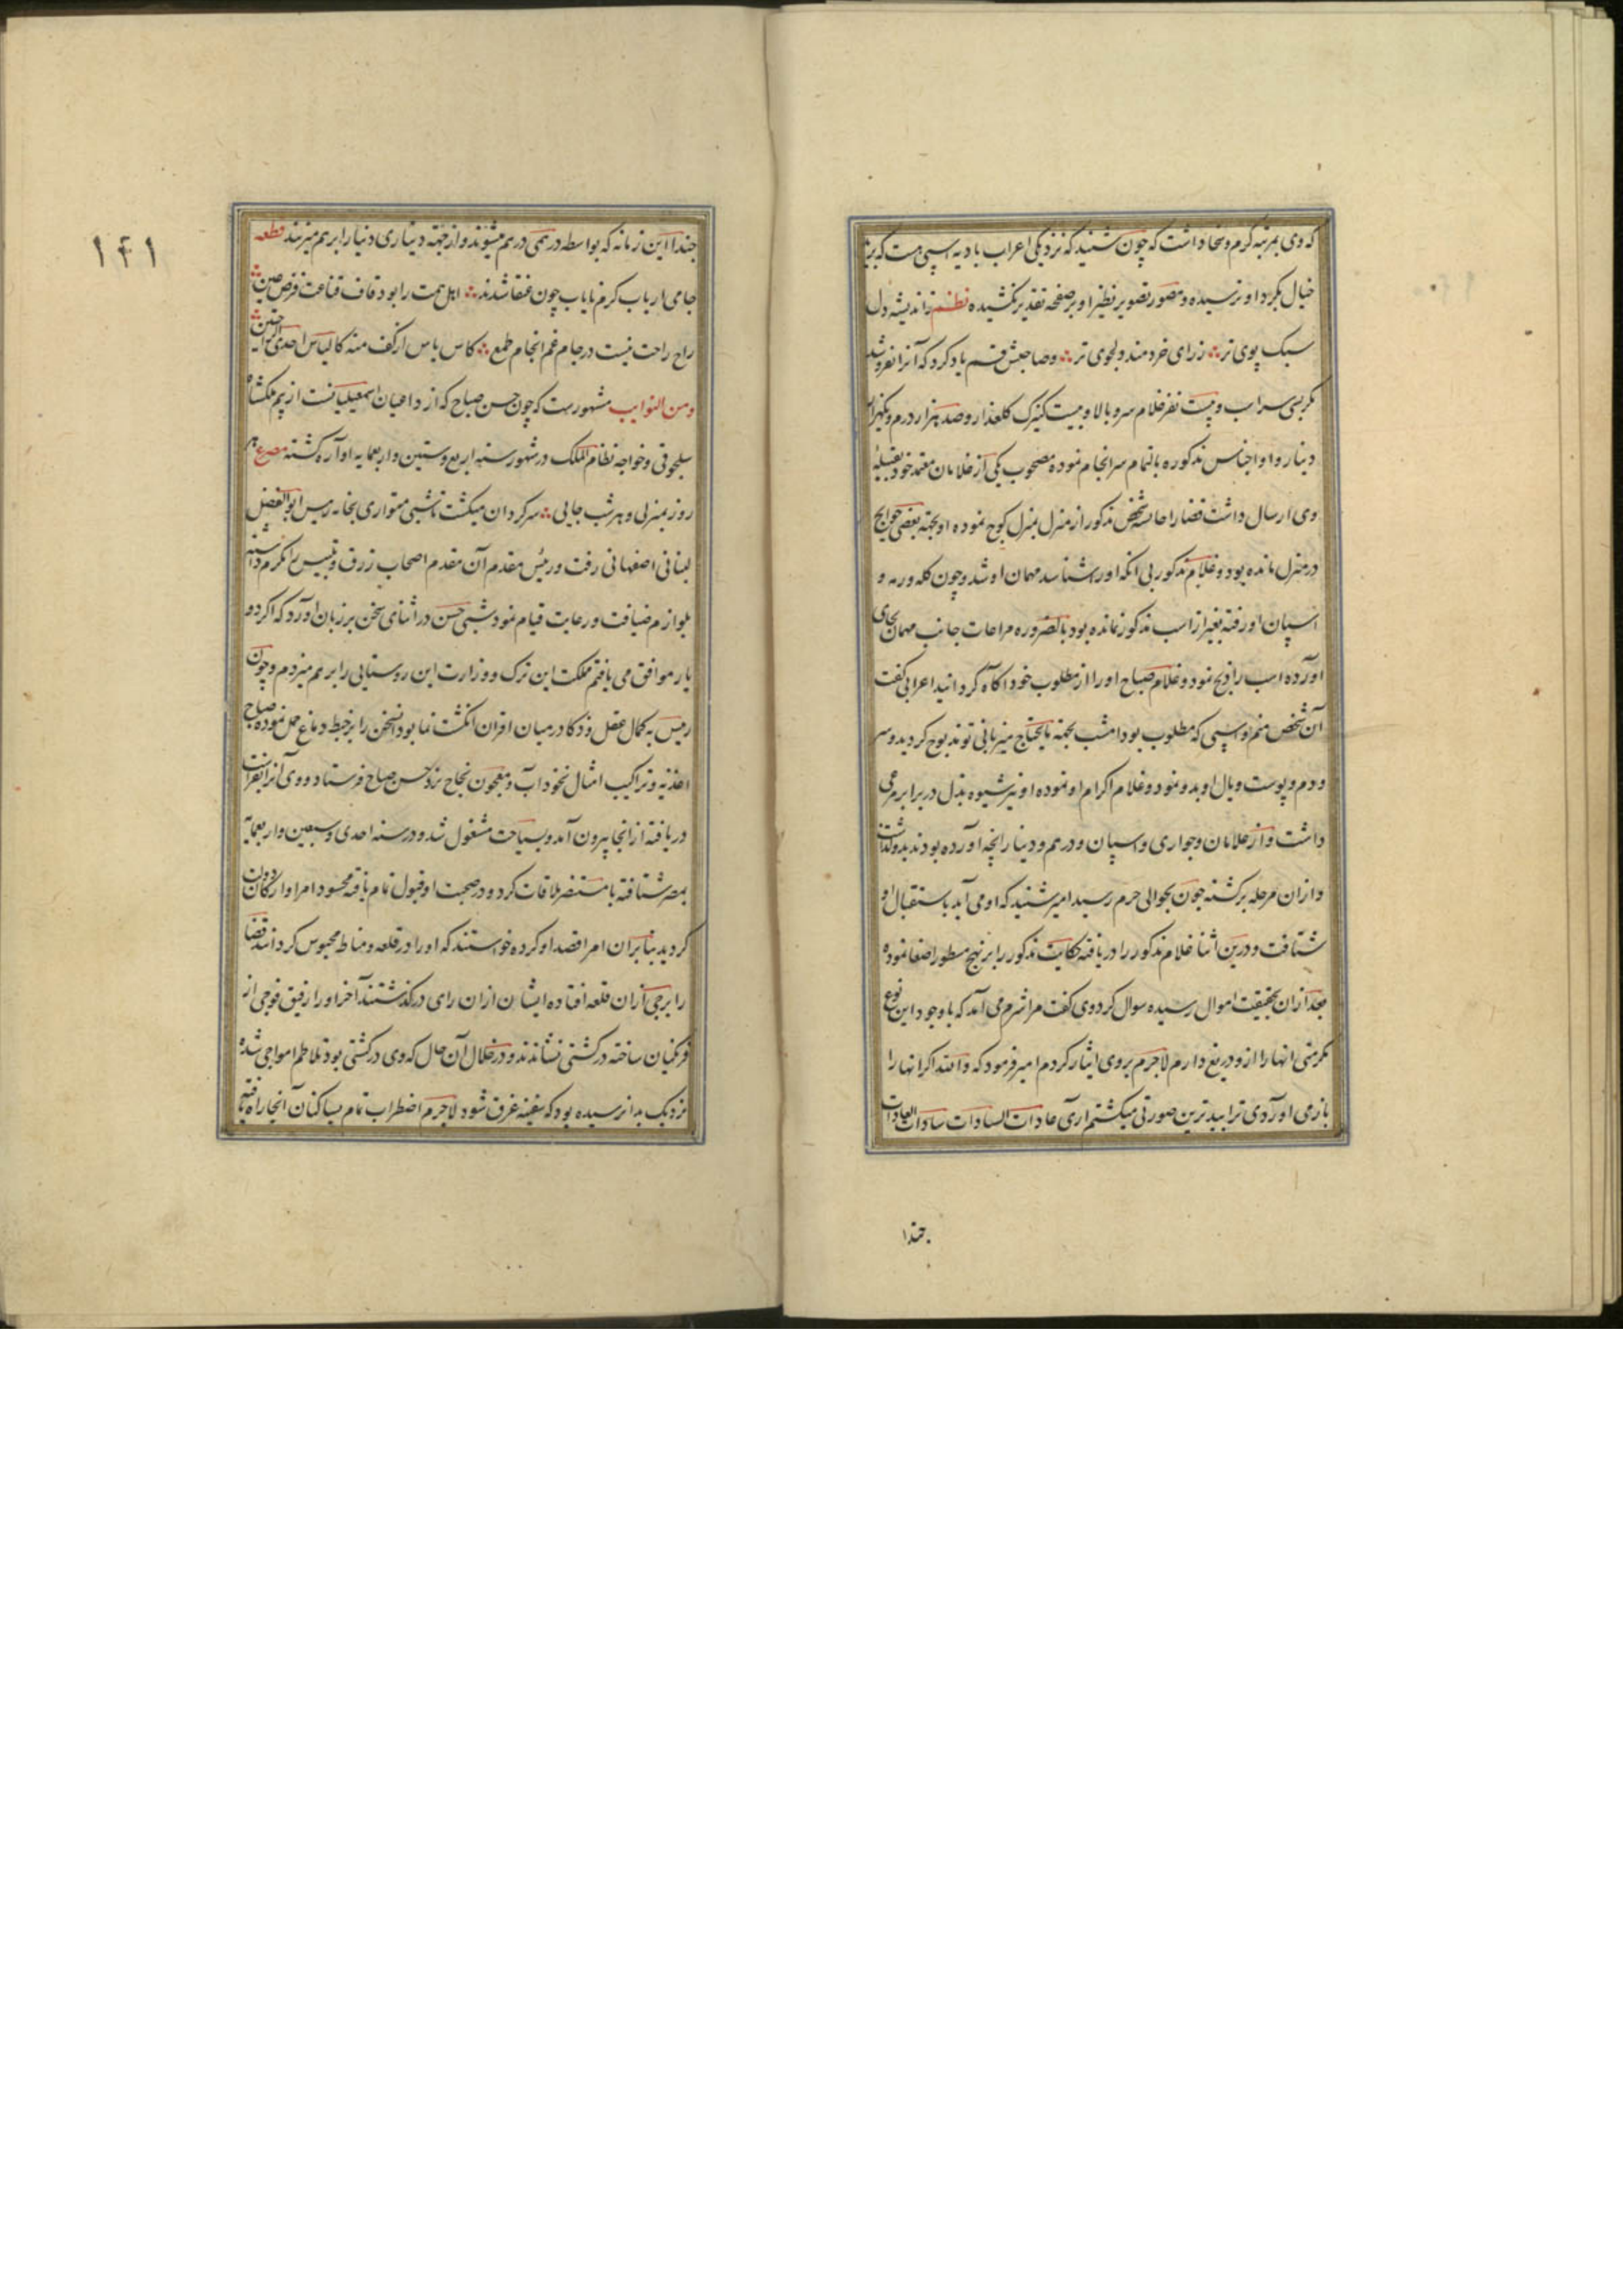 که وی بمرتبه کرم و سخا داشت که چون شنید که نزد یکی اعراب بادیه اسپی هست که برید
خیال بکرد او نرسیده و مصور تصویر نظیر او بر صفحه تقدیر نکشیده نظم ز اندیشه دل
سبک پوی تر ز رای خردمند ولجوی تر وصاحبش قسم یاد کرد که آنرا نفروشد
مکر بسی سراب و بیست نفر غلام سرو بالا و بیست کنیزک کلعذار و صد هزار درم و
دینار و او اجناس مذکوره بالتمام سرانجام نموده مصحوب یکی از غلامان معتمد خود بقبیله
وی ارسال داشت قضارا شخص مذکور از منزل بمنزل کوچ نموده او بجهة بعضی حوایج
در منزل مانده بود و غلام مذکور بی انکه او را شناسد مهمان او شد و چون کله و رمه و
اسپان او رفته بغیر از اسب مذکور نمانده بود بالضروره مراعات جانب مهمان بجای
آورده اسب را ذبح نمود و غلام صباح او را از مطلوب خود آکاه کردانید اعرابی کفت
آن شخص منم و اسپی که مطلوب بود امشب بجهة مایحتاج میزبانی تو مذبوح کردید و سر
و دم و پوست و یال او بدو نمود و غلام اکرام او نموده او نیز شیوه بذل در برابر مرعی
داشت و از غلامان و جواری و اسپان و درهم و دینار انچه آورده بودند بدو کذاشت
و ازان مرحله برکشته چون بحوالی حرم رسید امیر شنید که او می آید باستقبال او
شتافت و درین اثنا غلام مذکور را دریافته حکایت مذکور را بر نهج مسطور اصغا نموده
بعد ازان بحقیقت اموال رسیده سوال کرد وی کفت مرا شرم می آمد که با وجود این نوع
مکرمتی انها را ازو دریغ دارم لاجرم بروی ایثار کردم امیر فرمود که والله اکر انها را
باز می آوردی ترا ببدترین صورتی میکشتم آری عادات السادات سادات العادات
جندا
۱۴۱
جندا این زمانه که بواسطه درهمی درهم میشوند و از جهة دیناری دنیا را برهم میزنند قطعه
جامی ارباب کرم نایاب چون عنقا شدند اهل همت را بود قاف قناعت فرض عین
راح راحت نیست در جام غم انجام طمع کاس یاس از کف منه کالیاس احدی الراحتین
ومن النوایب مشهورست که چون حسن صباح که از داعیان اسمعیلیانست از بیم ملکشاه
سلجوقی و خواجه نظام الملک در شهور سنه اربع وستین واربعمایه آواره کشته مصرع هر
روز بمنزلی و هر شب جایی سرکردان میکشت تا شبی متواری بخانه رییس ابوالفضل
لبنانی اصفهانی رفت و رئیس مقدم آن مقدم اصحاب زرق و تلبیس را مکرم داشته
بلوازم ضیافت و رعایت قیام نمود شبی حسن در اثنای سخن بر زبان آورد که اکر دو
یار موافق می یافتم مملکت این ترک و وزارت این روستایی را برهم میزدم و چون
رییس به کمال عقل و ذکا در میان اقران انکشت نما بود سخن را بر خبط دماغ حمل نموده صباح
اغذیه و تراکیب امثال نخوداب و معجون نجاح نزد حسن صباح فرستاد و وی آنرا بفراست
دریافته از انجا بیرون آمد و بسیاحت مشغول شد و در سنه احدی وسبعین واربعمایه
بمصر شتافته با مستنصر ملاقات کرد و در صحبت او قبول تمام یافته محسود امرا و ارکان دولت
کردید بنابران امرا قصد او کرده خواستند که او را در قلعه دمیاط محبوس کردانند قضا
را برجی ازان قلعه افتاده ایشان ازان رای درکذشتند آخر او را رفیق فوجی از
فرنکیان ساخته در کشتی نشاندند و در خلال آن حال که وی در کشتی بود تلاطم امواجی شده
نزدیک بدان رسیده بود که سفینه غرق شود لاجرم اضطراب تمام بساکنان آنجا راه یافته